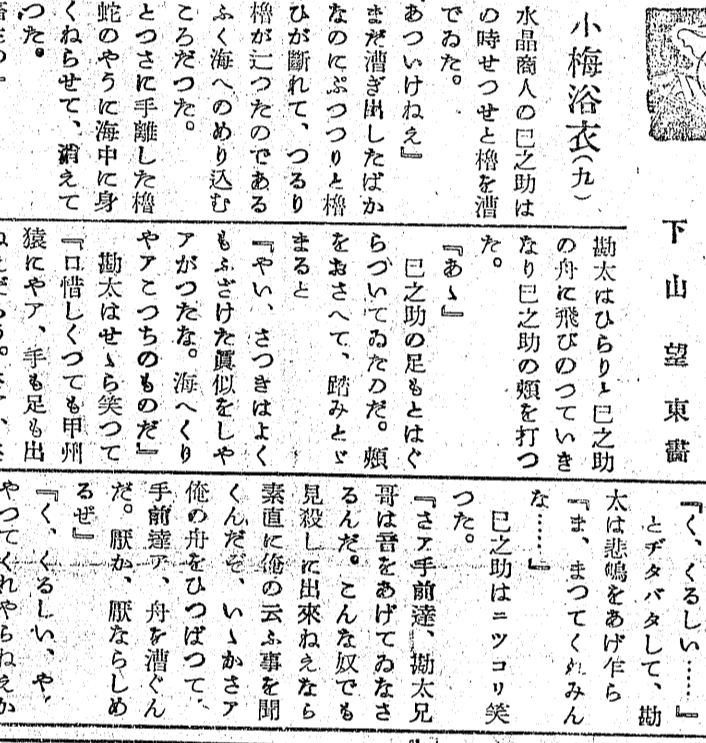 小梅浴衣(九)
下山望東畵
水晶商人の巳之助は
の時せつせと櫓を漕
でゐた。
あついけねえ』
まだ漕ぎ出したばか
なのにぷつつりと櫓
ひが斷れて、つるり
櫓が辷つたのである
ふく海へのめり込む
ころだつた。
とつさに手離した櫓
蛇のやうに海中に身
くねらせて、消えて
つた。
勘太はひらりと巳之助
の舟に飛びのつていき
なり巳之助の頰を打つ
た。
『あゝ』
巳之助の足もとはぐ
らづいてゐたのだ。頰
をおさへて、踏みとゞ
まると
『やい、さつきはよく
もふざけた眞似をしや
アがつたな。海へくり
やアこつちのものだ』
勘太はせゝら笑つて
『口惜しくつても甲州
猿にやア、手も足も出
ねえだらう。
『く、くるしい……』
とヂタバタして、勘
太は悲鳴をあげ乍ら
『ま、まつてくれみん
な……』
巳之助はニツコリ笑
つた。
『さア手前達、勘太兄
哥は音をあげてゐなさ
るんだ。こんな奴でも
見殺しに出來ねえなら
素直に俺の云ふ事を聞
くんだぞ、いゝかさア
俺の舟をひつぱつて、
手前達ア、舟を漕ぐん
だ。厭か、厭ならしめ
るぜ』
『く、くるしい、や、
やつてくれやらねえか